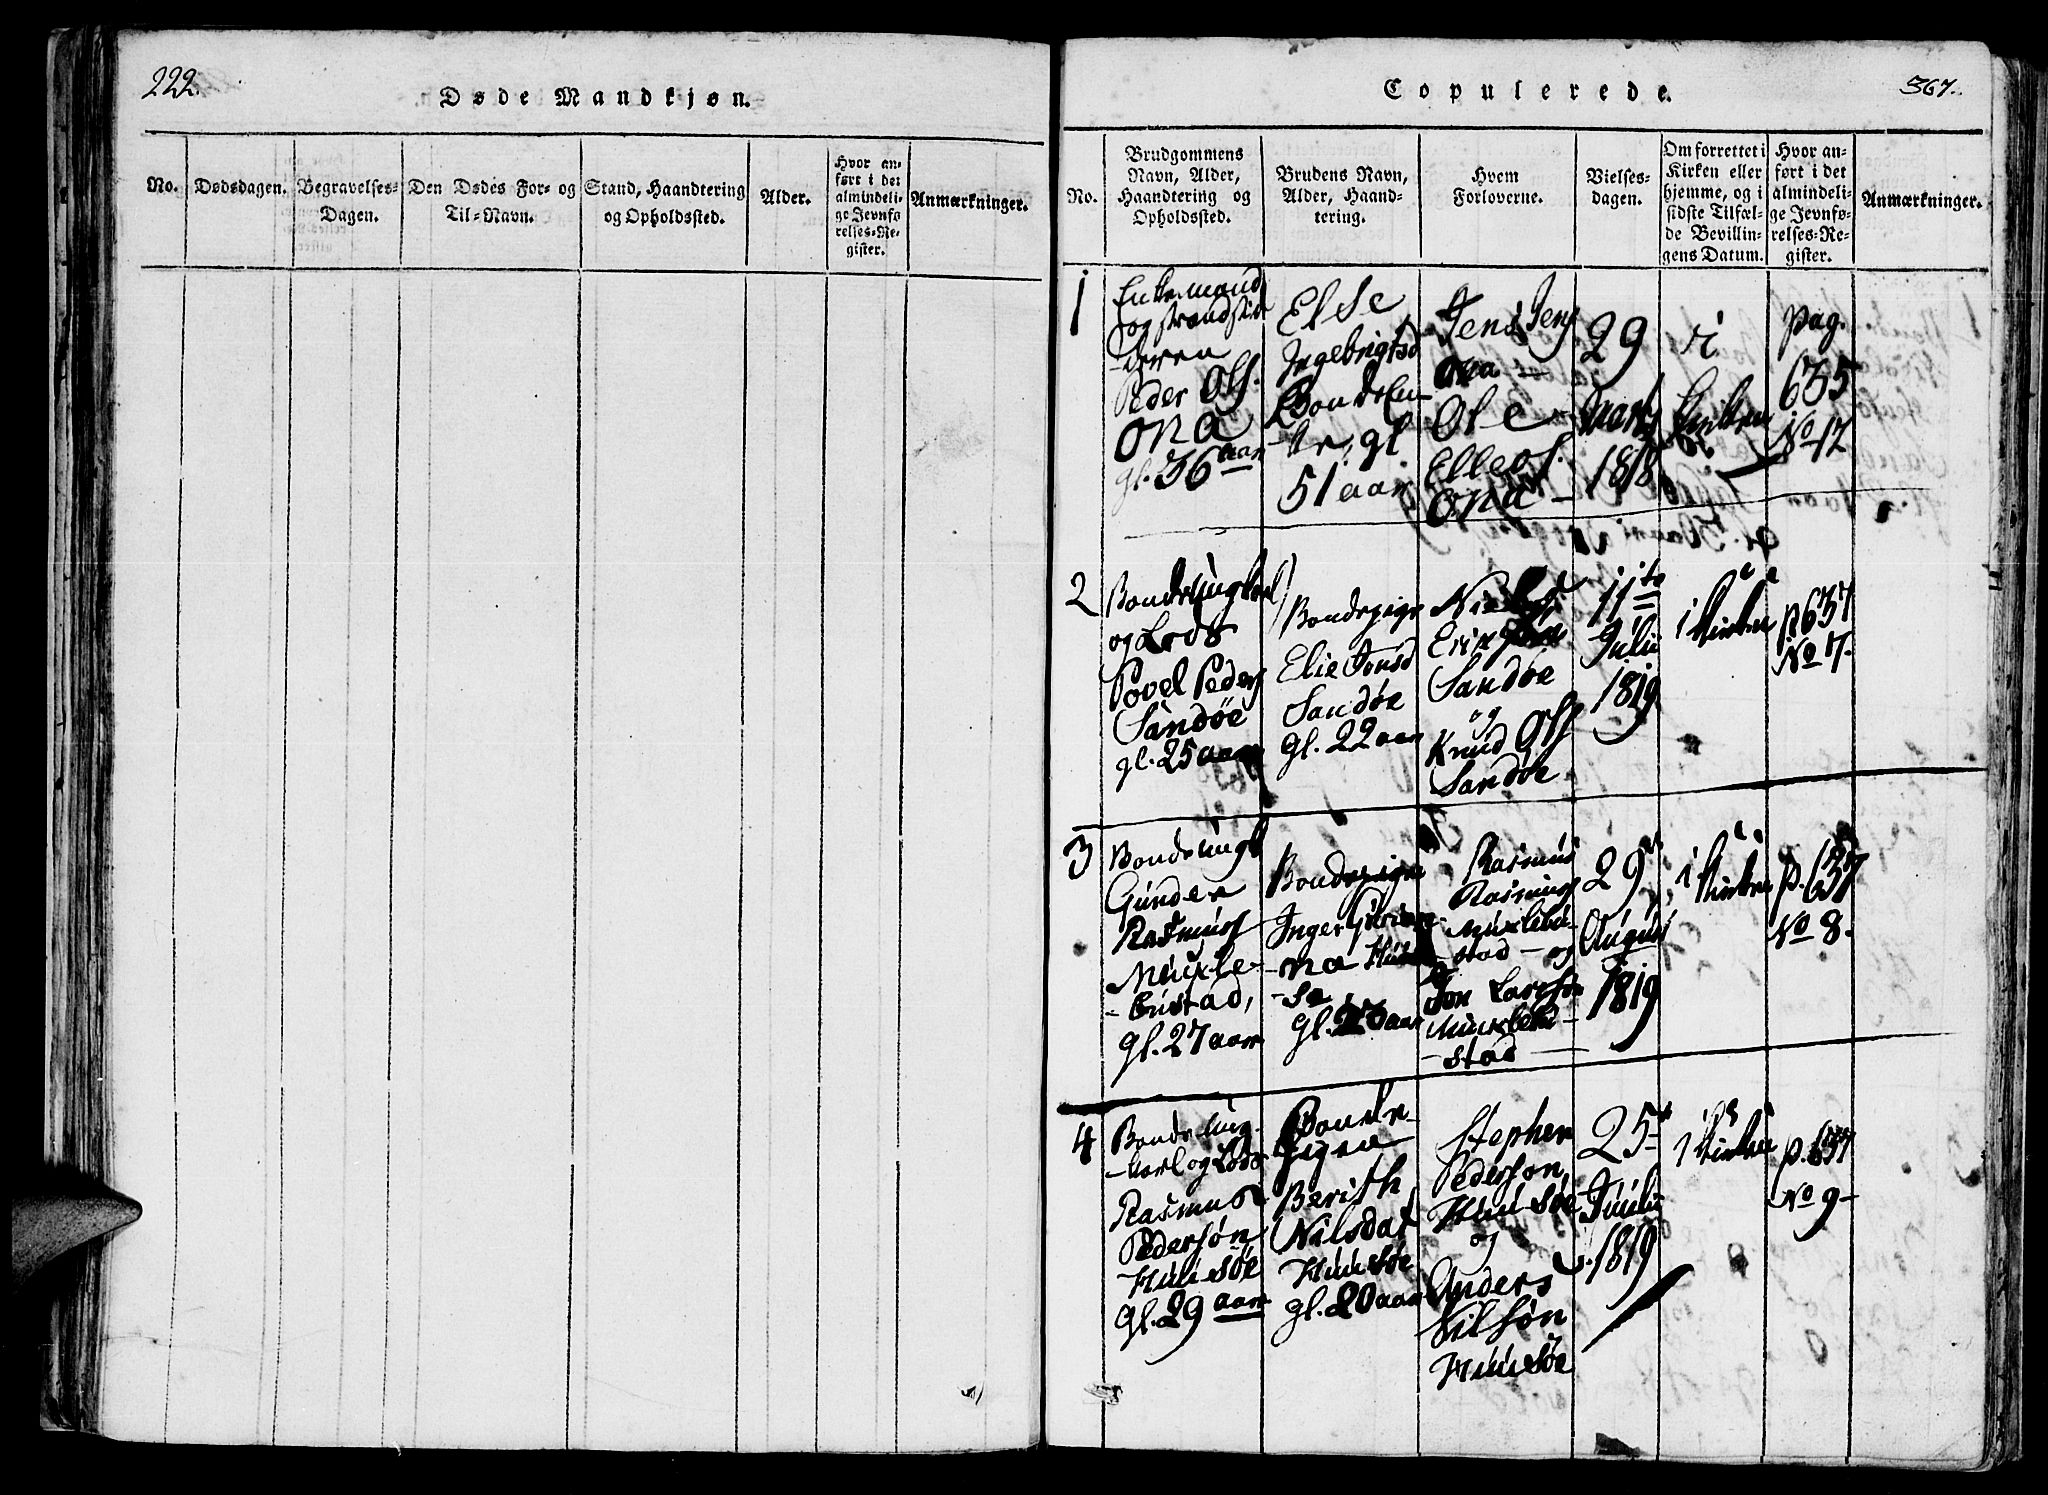 222.
Døde Mandkjøn.
No.
Dødsdagen.
Begravelses-
Dagen.
Den Dødes For- og
Til-Navn.
Stand, Haandtering
og Opholdssted.
Alder.
Hvor an-
ført i det
almindeli-
ge Jevnfø
relses-Re-
gister.
Anmærkninger.
Copulerede.
367.
No.
Brudgommens
Navn, Alder,
Haandtering og
Opholdssted.
Brudens Navn,
Alder, Haand-
tering.
Hvem
Forloverne.
Vielses-
dagen.
Om forrettet i
Kirken eller
hjemme, og i
sidste Tilfæl-
de Bevillin-
gens Datum.
Hvor an-
ført i det
almindeli-
ge Jevnfø-
relses-Re-
gister.
Anmærkninger.
1
Enkemand
og strandsid
-deren
Peder Ols.
ona
gl. 56 aar
Else
Ingebrigtsd
Bonde En-
-ke, gl
51 aar
Jens Jens
ona -
Ole -
Elleofs.
ona -
29
Marty
1818
i
Kirken
pag.
635
No 12
2
Bondeungkarl
og Lods
Povel Peders
Sandøe
gl. 25 aar
Bondepige
Elie Jonsd
Sandøe
gl. 22 aar
Niels
Erik
Sandøe
og
Knud Ols
Sandøe
11te
Julii
1819
i Kirken
p 637
No 7.
3
Bondeungk
Gunder
Rasmus
Myxle-
-bustad,
gl. 27 aar
Bondepige
Inger
-na
-sø,
gl. aar
Rasmus
Rasmus
Myxlebu-
-stad - og
Jon Larssøn
Myxlebu-
-stad -
29
August
1819
i Kirken
p. 637
No 8.
4
Bonde ung-
-karl og Lods
Rasmus
Pedersøn
Huusøe
Gl. 29 aar
Bonde-
Pigen
Berith
Nilsdat
Huusøe
gl. 20 aar
Stephen
Pedersøn,
Huusøe
og
Anders
Nilsøn
Huusøe
25
Juulii
1819
i Kirken
p. 637
No 9-